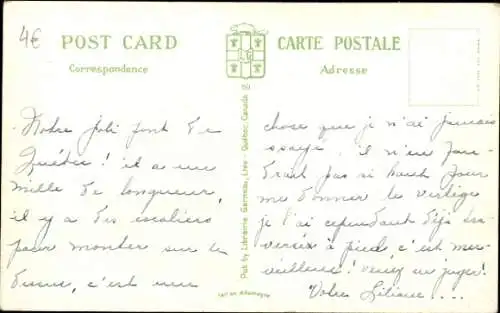 4€
POST CARD
Correspondence
CARTE POSTALE
Adresse
Notre joli pont de
Québec! il a une
mille de longueur,
il y a des escaliers
pour monter sur le
dessus, c'est une
Pub by Librairie Garneau, Ltée - Québec, Canada
chose que je n'ai jamais
essayé. il n'en fau-
drait pas si haut pour
me donner le vertige
je l'ai cependant déjà tra-
versé à pied, c'est mer-
veilleux! venez en juger!
Votre Liliane ...